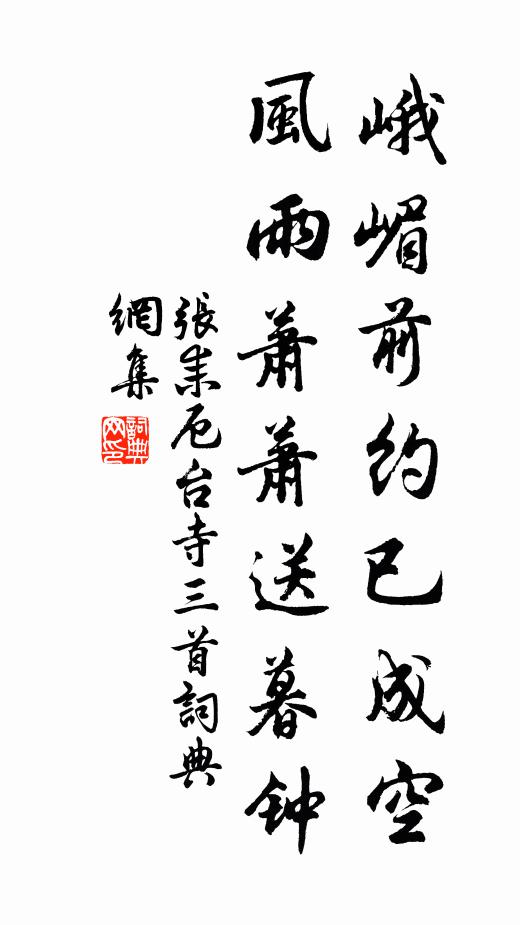 峨嵋前约已成空
風雨蕭蕭送暮钟
張耒厄台寺三首詞典
網集
詞典
网印